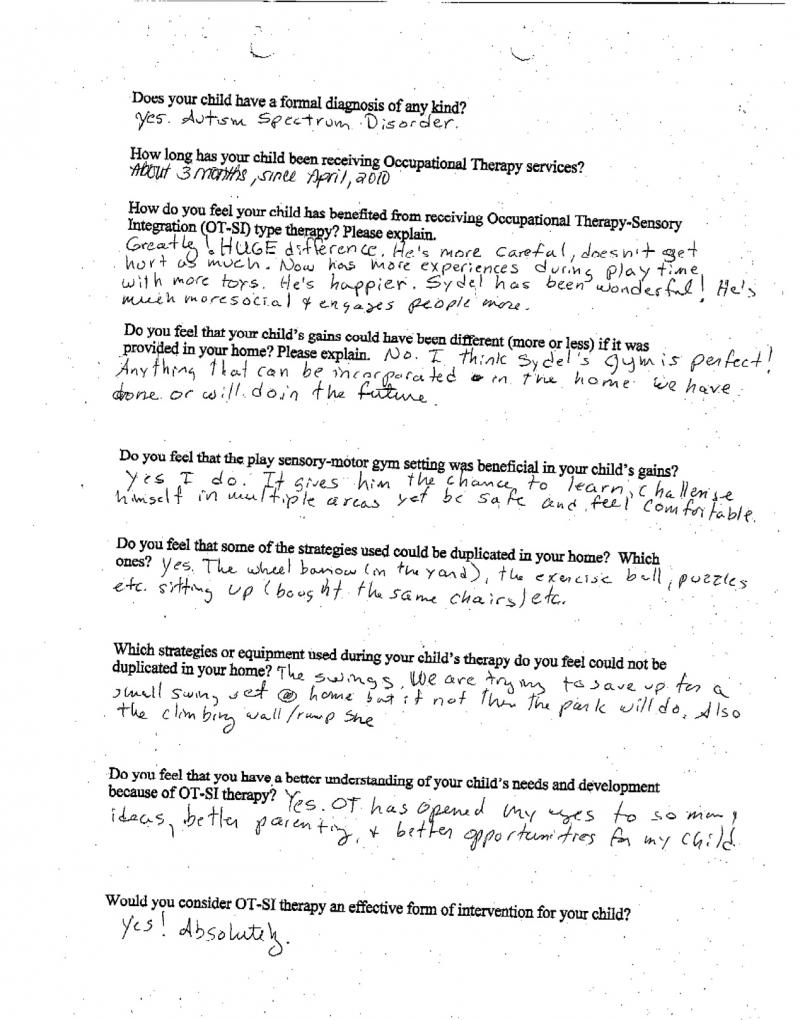 Does your child have a formal diagnosis of any kind?
Yes. Autism Spectrum Disorder.
How long has your child been receiving Occupational Therapy services?
About 3 months, since April, 2010
How do you feel your child has benefited from receiving Occupational Therapy-Sensory
Integration (OT-SI) type therapy? Please explain.
Greatly! HUGE difference. He's more careful, doesn't get
hurt as much. Now has more experiences during play time
with more toys. He's happier. Sydel has been wonderful! He's
much more social & engages people more.
Do you feel that your child's gains could have been different (more or less) if it was
provided in your home? Please explain. No. I think Sydel's gym is perfect!
Anything that can be incorporated in the home we have
done or will do in the future.
Do you feel that the play sensory-motor gym setting was beneficial in your child's gains?
Yes I do. It gives him the chance to learn, challenge
himself in multiple areas yet be safe and feel comfortable.
Do you feel that some of the strategies used could be duplicated in your home? Which
ones? Yes. The wheel barrow (in the yard), the exercise ball, puzzles
etc. sitting up (bought the same chairs) etc.
Which strategies or equipment used during your child's therapy do you feel could not be
duplicated in your home? The swings. We are trying to save up for a
small swing set @ home but if not then the park will do. Also
the climbing wall/ramp she
Do you feel that you have a better understanding of your child's needs and development
because of OT-SI therapy? Yes. OT has opened my eyes to so many
ideas, better parenting, & better opportunities for my child
Would you consider OT-SI therapy an effective form of intervention for your child?
Yes! Absolutely.